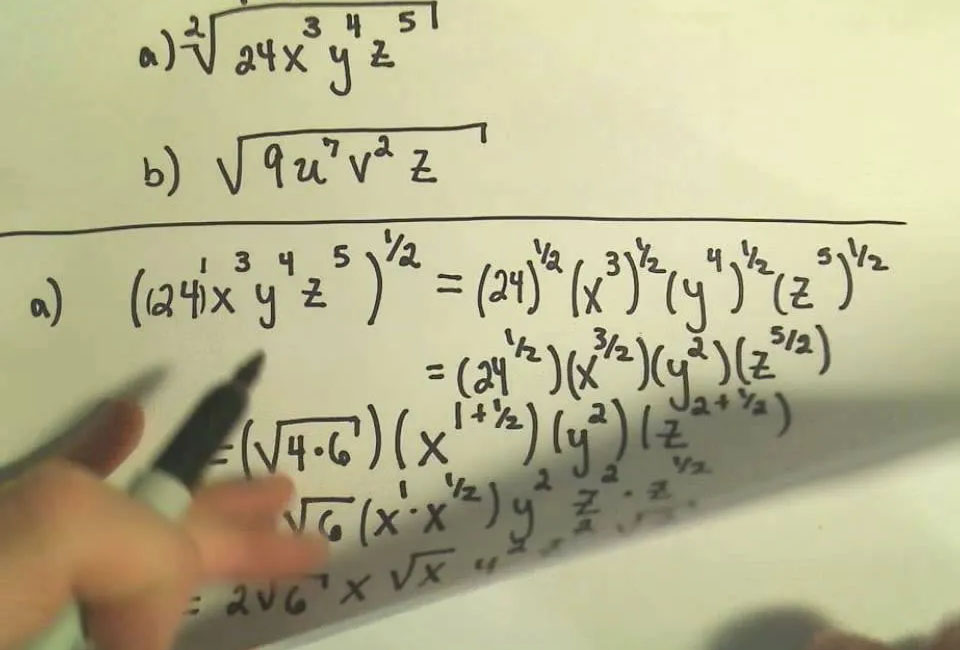 a) ²√(24x³y⁴z⁵)
b) √(9u⁷v²z)
a) ((24)¹x³y⁴z⁵)^1/2 = (24)^1/2 (x³)^1/2 (y⁴)^1/2 (z⁵)^1/2
= (24^1/2)(x^3/2)(y²)(z^5/2)
= (√(4·6))(x^1+1/2)(y²)(z^2+1/2)
√6 (x¹·x^1/2) y² z² · z^1/2
= 2√6 x √x